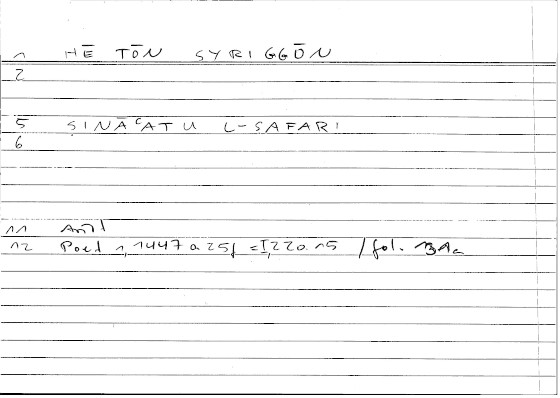 1 HĒ TŌN SYRIGGŌN
2
5 ṢINĀʿATU L-SAFARI
6
11 Arı͞l
12 Poet 1,1447 a 25f = I,220.15 / fol. 131a